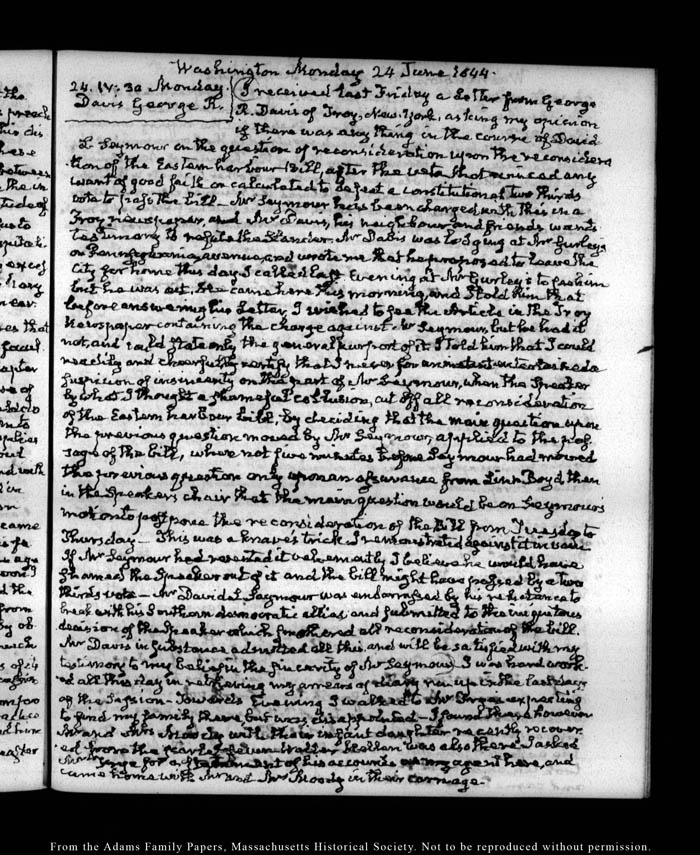 Washington Monday 24 June 1844.
24. IV: 30 Monday.
Davis George R.
I received last Friday a Letter from George
R. Davis of Troy, New-York, asking my opinion
if there was any thing in the course of David
L. Seymour on the question of reconsideration upon the reconsidera
tion of the Eastern harbour Bill, after the veto that evinced any
want of good faith or calculated to defeat a constitutional two thirds
vote to pass the bill. Mr Seymour has been charged with this in a
Troy newspaper, and Mr Davis, his neighbour and friend wants
testimony to refute the slander. Mr Davis was lodging at Mr Gurley's
on Pennsylvania avenue, and wrote me that he proposed to leave the
City for home this day. I called last Evening at Mr Gurley's to see him
but he was out. He came here this morning, and I told him that
before answering his Letter, I wished to see the Article in the Troy
Newspaper containing the charge against Mr Seymour, but he had it
not, and could state only the general purport of it. I told him that I could
readily and cheerfully certify that I never for an instant entertained a
suspicion of insincerity on the part of Mr Seymour, when the Speaker
by what I thought a shameful collusion, cut off all reconsideration
of the Eastern harbour bill, by deciding that the main question upon
the previous question moved by Mr Seymour, applied to the pas-
sage of the bill, where not five minutes before Seymour had moved
the previous question only upon an assurance from Linn Boyd then
in the Speakers chair that the main question would be on Seymour's
motion to postpone the reconsideration of the Bill from Tuesday to
Thursday — This was a knave's trick I remonstrated against it in vain
If Mr Seymour had resented it vehemently I believe he would have
shamed the Speaker out of it and the bill might have passed by a two
thirds vote — Mr David L. Seymour was embarrassed by his reluctance to
break with his Southern democratic allies and submitted to the iniquitous
decision of the Speaker which smothered all reconsideration of the bill.
Mr Davis in substance admitted all this, and will be satisfied with my
testimony to my belief in the sincerity of Mr Seymour. I was hard work-
ed all this day in retrieving my arrears of diary run up in the last days
of the Session. Towards Evening I walked to Mr Frye's expecting
to find my family there, but was disappointed — I found there however
Mr and Mrs Moody with their infant daughter recently recover-
ed from the scarlet fever. Walter Hellen was also there. I asked
Mr Frye for a statement of his accounts as my agent here, and
came home with Mr and Mrs Moody in their carriage.
From the Adams Family Papers, Massachusetts Historical Society. Not to be reproduced without permission.